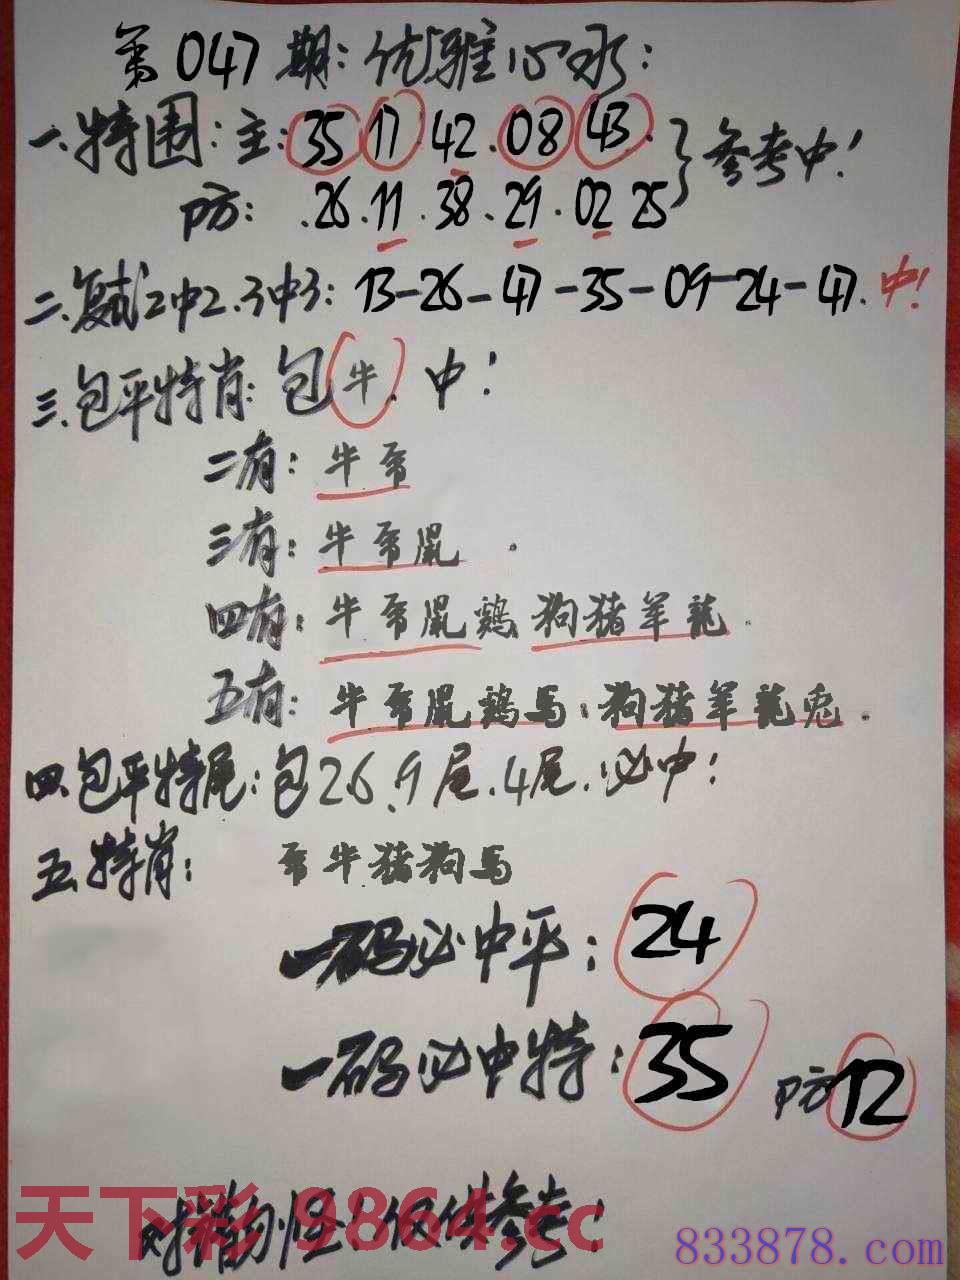 第047期:优雅心水:
一.特围:主:35 17 42.08 43.
防:.26.11.38.29.02 25
参考中!
二.复试2中2.3中3:13-26-47-35-09-24-47.中!
三.包平特肖:包牛.中!
二有:牛
三有:牛 鼠.
四有:牛 鼠鷄狗猪羊龍.
五有:牛 鼠鷄馬:狗猪羊龍兔.
四.包平特尾:包26.9尾.4尾.必中!
五.特肖: 牛猪狗馬
一码必中平:24
一码必中特:35 防12
勿怪!仅供参考!
天下彩 9864.cc
833878.com